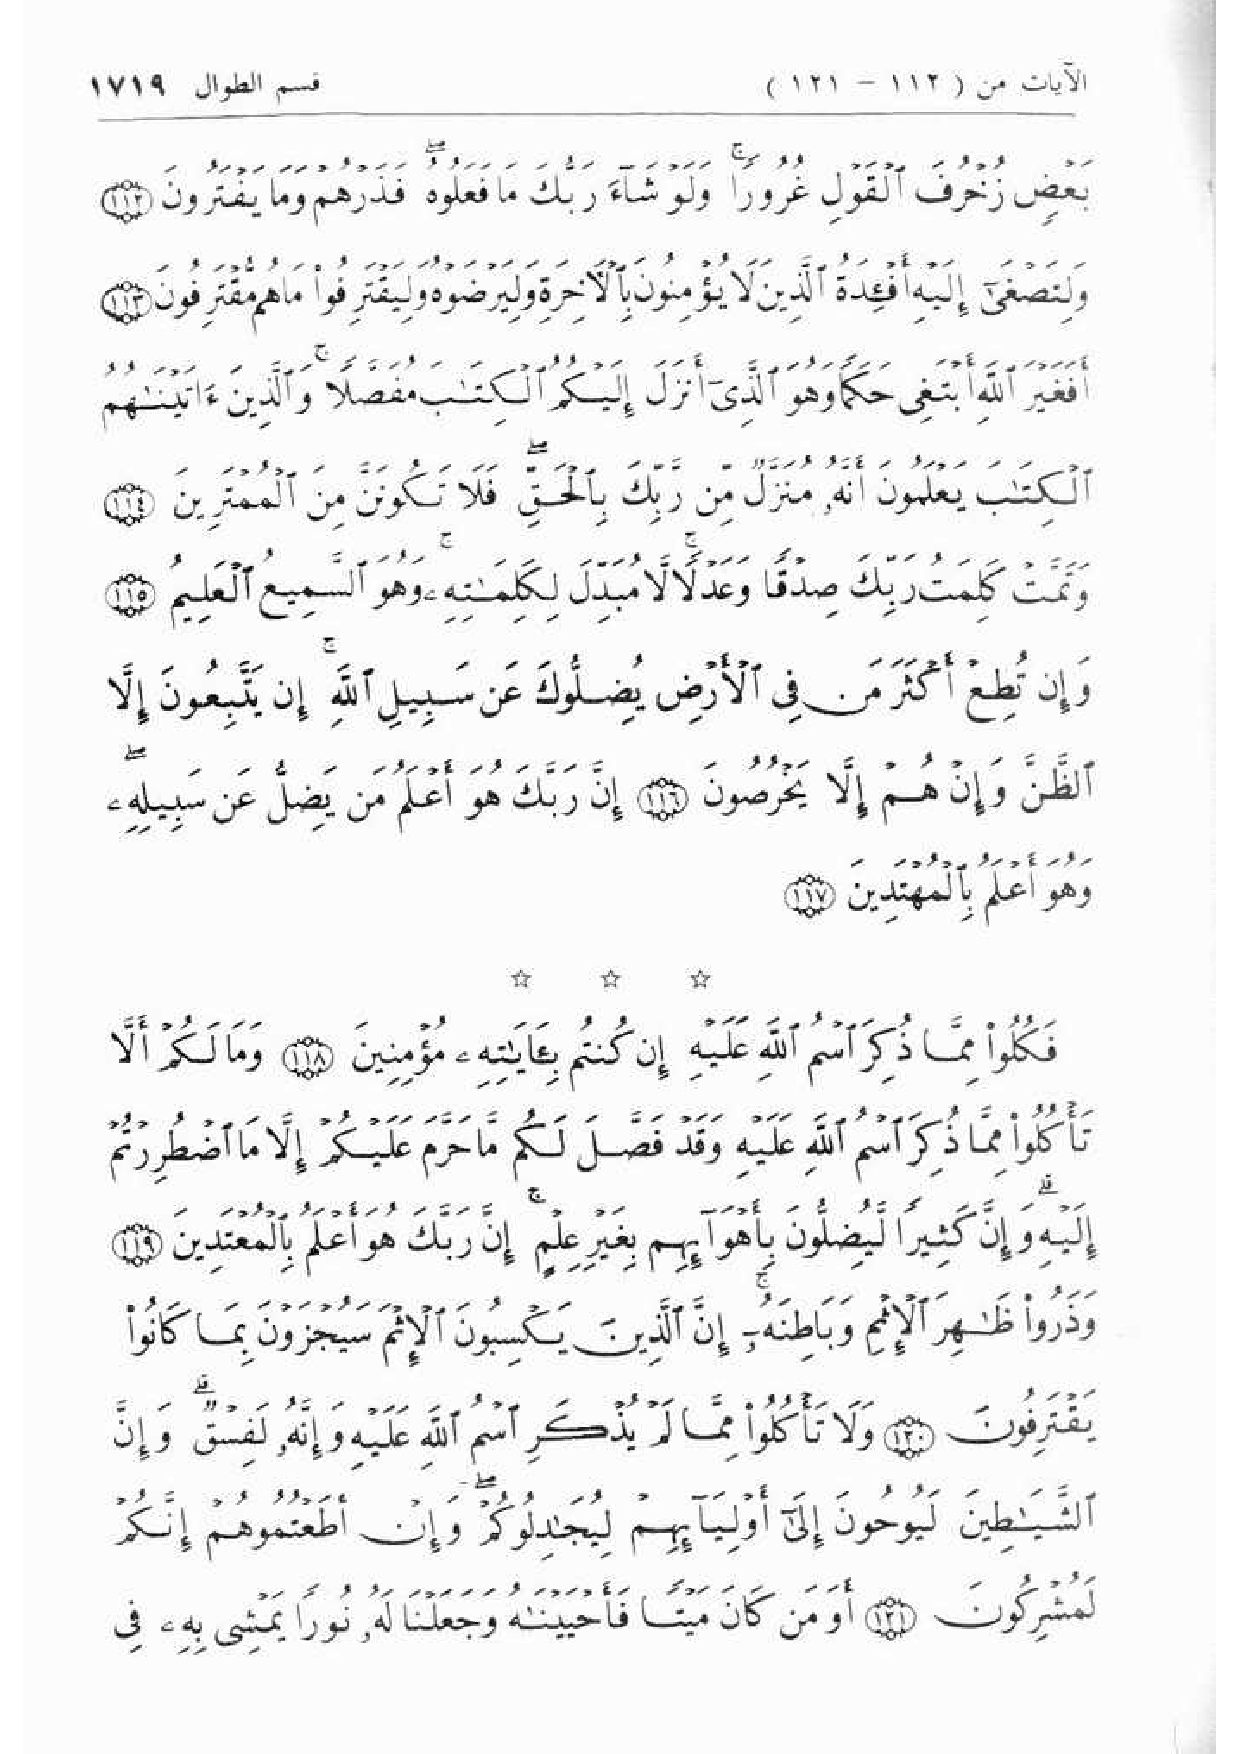 الآيات من ( ١١٢ - ١٢١ ) قسم الطوال ١٧١٩
بَعْضٍ زُخْرُفَ ٱلْقَوْلِ غُرُورًا ۚ وَلَوْ شَآءَ رَبُّكَ مَا فَعَلُوهُ ۖ فَذَرْهُمْ وَمَا يَفْتَرُونَ ١١٢
وَلِتَصْغَىٰٓ إِلَيْهِ أَفْـِٔدَةُ ٱلَّذِينَ لَا يُؤْمِنُونَ بِٱلْأٓخِرَةِ وَلِيَرْضَوْهُ وَلِيَقْتَرِفُوا۟ مَا هُم مُّقْتَرِفُونَ ١١٣
أَفَغَيْرَ ٱللَّهِ أَبْتَغِى حَكَمًا وَهُوَ ٱلَّذِىٓ أَنزَلَ إِلَيْكُمُ ٱلْكِتَـٰبَ مُفَصَّلًا ۚ وَٱلَّذِينَ ءَاتَيْنَـٰهُمُ
ٱلْكِتَـٰبَ يَعْلَمُونَ أَنَّهُۥ مُنَزَّلٌ مِّن رَّبِّكَ بِٱلْحَقِّ ۖ فَلَا تَكُونَنَّ مِنَ ٱلْمُمْتَرِينَ ١١٤
وَتَمَّتْ كَلِمَتُ رَبِّكَ صِدْقًا وَعَدْلًا ۚ لَّا مُبَدِّلَ لِكَلِمَـٰتِهِۦ ۚ وَهُوَ ٱلسَّمِيعُ ٱلْعَلِيمُ ١١٥
وَإِن تُطِعْ أَكْثَرَ مَن فِى ٱلْأَرْضِ يُضِلُّوكَ عَن سَبِيلِ ٱللَّهِ ۚ إِن يَتَّبِعُونَ إِلَّا
ٱلظَّنَّ وَإِنْ هُمْ إِلَّا يَخْرُصُونَ ١١٦ إِنَّ رَبَّكَ هُوَ أَعْلَمُ مَن يَضِلُّ عَن سَبِيلِهِۦ ۖ
وَهُوَ أَعْلَمُ بِٱلْمُهْتَدِينَ ١١٧
☆ ☆ ☆
فَكُلُوا۟ مِمَّا ذُكِرَ ٱسْمُ ٱللَّهِ عَلَيْهِ إِن كُنتُم بِـَٔايَـٰتِهِۦ مُؤْمِنِينَ ١١٨ وَمَا لَكُمْ أَلَّا
تَأْكُلُوا۟ مِمَّا ذُكِرَ ٱسْمُ ٱللَّهِ عَلَيْهِ وَقَدْ فَصَّلَ لَكُم مَّا حَرَّمَ عَلَيْكُمْ إِلَّا مَا ٱضْطُرِرْتُمْ
إِلَيْهِ ۗ وَإِنَّ كَثِيرًا لَّيُضِلُّونَ بِأَهْوَآئِهِم بِغَيْرِ عِلْمٍ ۚ إِنَّ رَبَّكَ هُوَ أَعْلَمُ بِٱلْمُعْتَدِينَ ١١٩
وَذَرُوا۟ ظَـٰهِرَ ٱلْإِثْمِ وَبَاطِنَهُۥٓ ۚ إِنَّ ٱلَّذِينَ يَكْسِبُونَ ٱلْإِثْمَ سَيُجْزَوْنَ بِمَا كَانُوا۟
يَقْتَرِفُونَ ١٢٠ وَلَا تَأْكُلُوا۟ مِمَّا لَمْ يُذْكَرِ ٱسْمُ ٱللَّهِ عَلَيْهِ وَإِنَّهُۥ لَفِسْقٌ ۗ وَإِنَّ
ٱلشَّيَـٰطِينَ لَيُوحُونَ إِلَىٰٓ أَوْلِيَآئِهِمْ لِيُجَـٰدِلُوكُمْ ۖ وَإِنْ أَطَعْتُمُوهُمْ إِنَّكُمْ
لَمُشْرِكُونَ ١٢١ أَوَ مَن كَانَ مَيْتًا فَأَحْيَيْنَـٰهُ وَجَعَلْنَا لَهُۥ نُورًا يَمْشِى بِهِۦ فِى